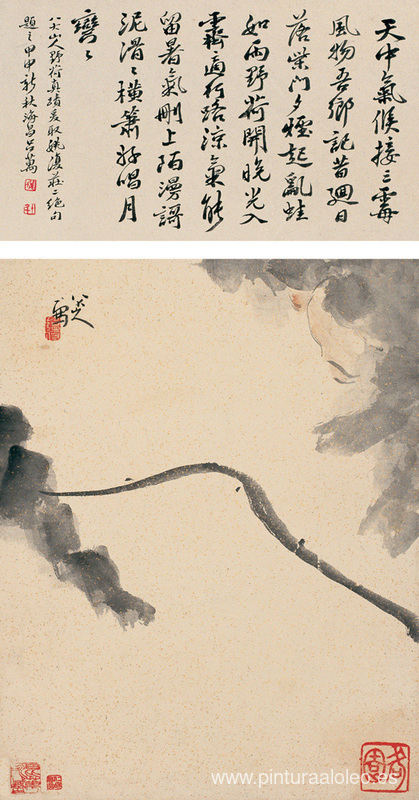 天中氣候接三霉
風物吾鄉記昔迴日
落柴門夕煙起亂蛙
如雨野荷開晚光入
霽適行路涼氣能
留暑氣刪上陌漫謌
泥滑〻橫簫好唱月
彎〻
八大山人野荷真蹟爰取姚漢莊二絕句
題之甲申新秋海昌吕萬
八大
www.pinturaaloleo.es